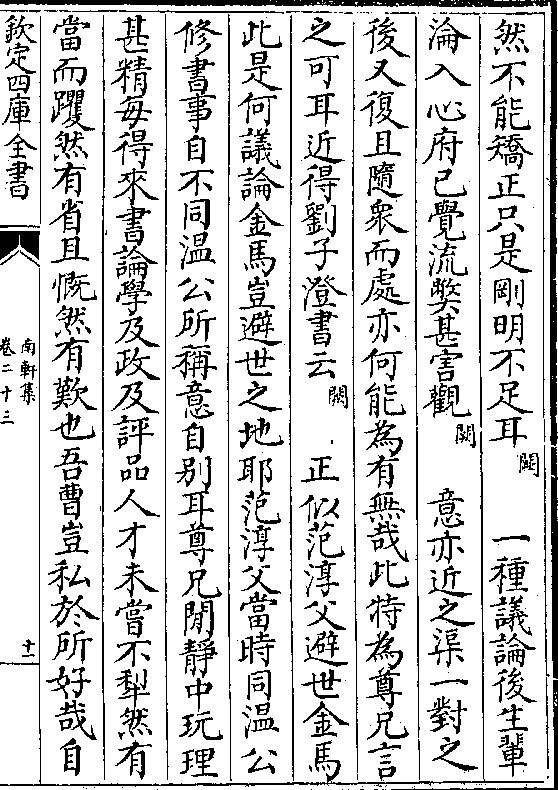 然不能矯正只是剛明不足耳闕　一種議論後生輩
淪入心府已覺流獘甚害觀闕　意亦近之渠一對之
後又復且隨衆而處亦何能為有無哉此特為尊兄言
之可耳近得劉子澄書云闕　正似范淳父避世金馬
此是何議論金馬豈避世之地耶范淳父當時同温公
修書事自不同温公所稱意自别耳尊兄閒靜中玩理
甚精每得來書論學及政及評品人才未嘗不犁然有
當而躩然有省且慨然有歎也吾曹豈私於所好哉自
欽定四庫全書
南軒集
卷二十三
十一